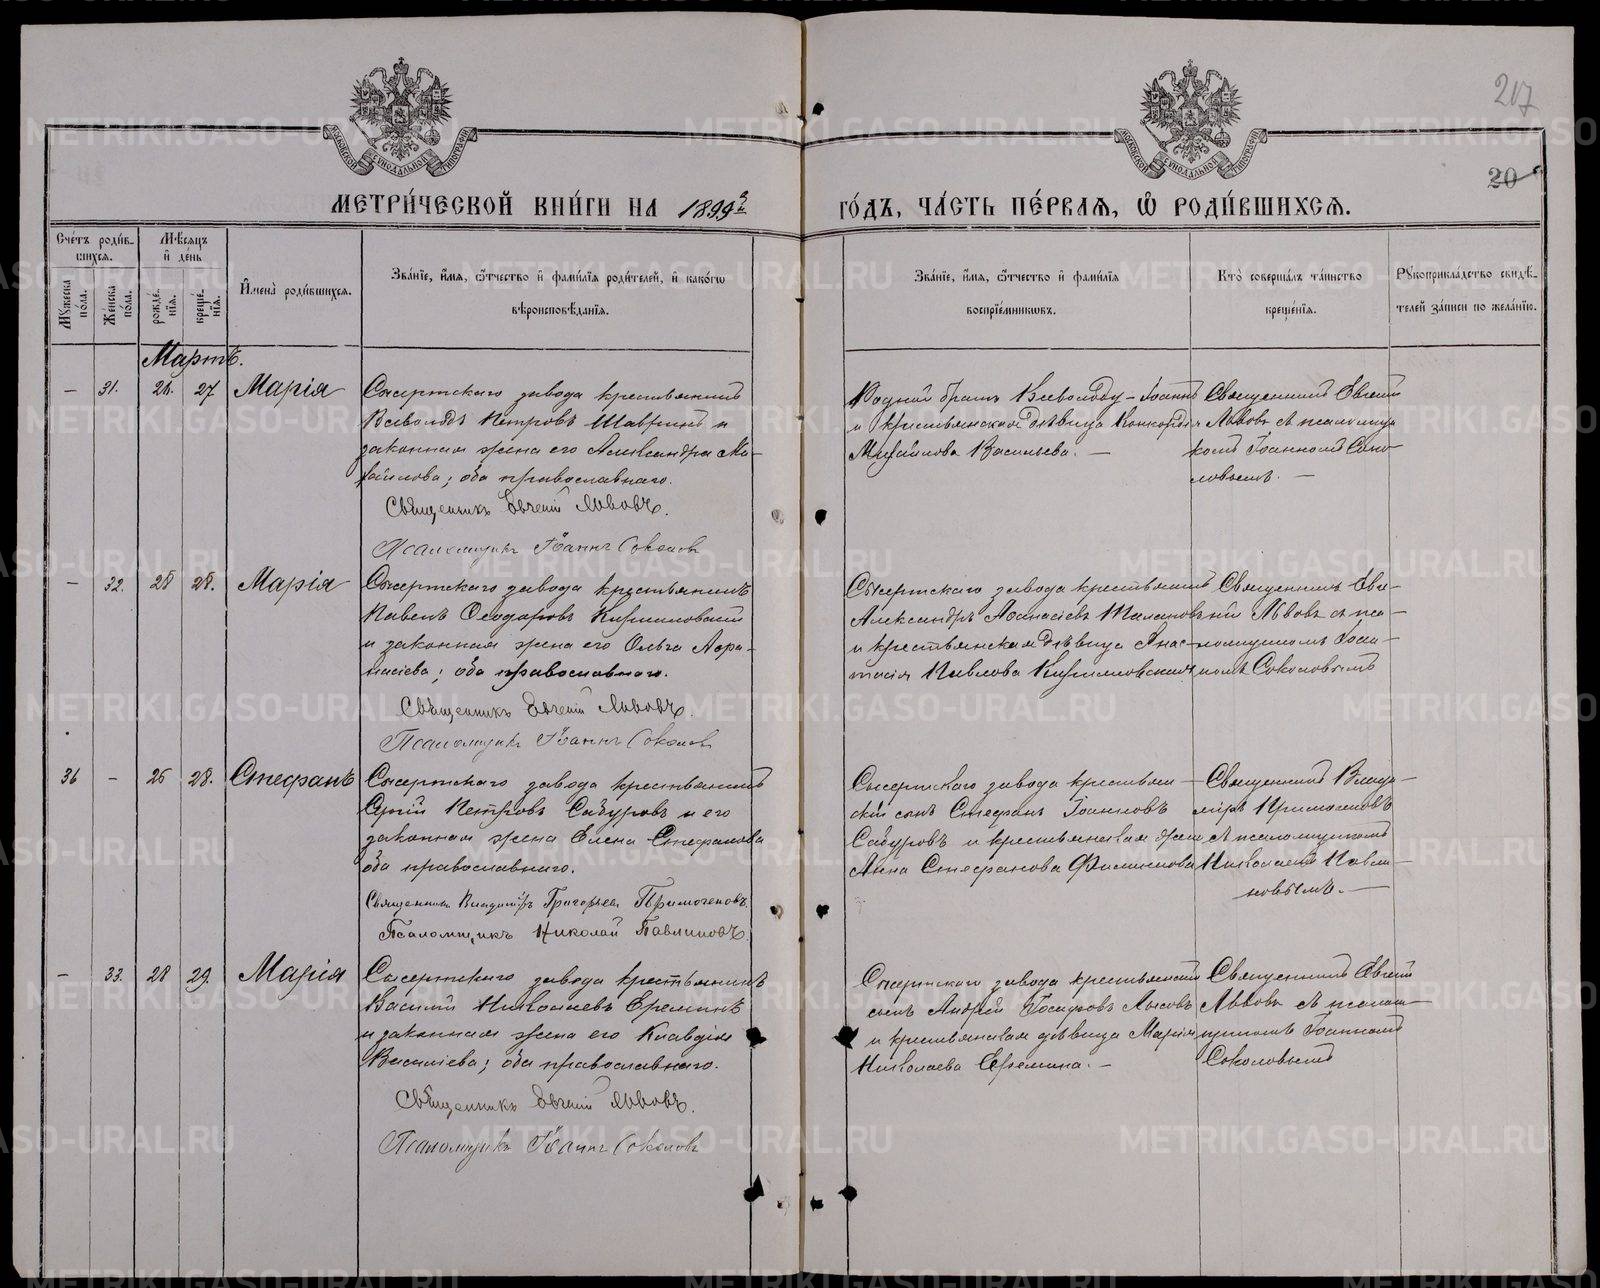 217
20
МОСКОВСКОЙ СѴНОДАЛЬНОЙ ТИПОГРАФІИ
МОСКОВСКОЙ СѴНОДАЛЬНОЙ ТИПОГРАФІИ
МЕТРИ́ЧЕСКОЙ КНИ́ГИ НА 1899й ГО́ДЪ, ЧА́СТЬ ПЕ́РВАЯ, Ѡ РОДИ́ВШИХСЯ.
Сче́тъ роди́вшихся.
Му́жеска по́ла.
Же́нска по́ла.
Мѣ́сяцъ и де́нь
рожде́нія.
креще́нія.
И҆мена̀ роди́вшихся.
Зва́ніе, и҆́мя, ѻ҆́тчество и҆ фами́лія роди́телей, и҆ како́гѡ
вѣроисповѣ́данія.
Зва́ніе, и҆́мя, ѻ҆́тчество и҆ фами́лія
воспріе́мникѡвъ.
Кто̀ соверша́лъ та́инство
креще́нія.
Рꙋкоприкла́дство свидѣ́телей за́писи по жела́нію.
Мартъ.
– 31. 21. 27 Марія
Сысертскаго завода крестьянинъ
Всеволодъ Петровъ Шавринъ и
законная жена его Александра Ми-
хаилова; оба православнаго.
Священникъ Евгеній Львовъ.
Псаломщикъ Іоаннъ Соколовъ
Родной братъ Всеволоду – Іоаннъ
и крестьянская дѣвица Конкордія
Михаилова Васильева. –
Священникъ Евгеній
Львовъ съ псаломщи-
комъ Іоанномъ Соко-
ловымъ. –
– 32. 28 28. Марія
Сысертскаго завода крестьянинъ
Павелъ Ѳеодоровъ
и законная жена его Ольга Аѳа-
насіева; оба православнаго.
Священникъ Евгеній Львовъ.
Псаломщикъ Іоаннъ Соколовъ
Сысертскаго завода крестьянинъ
Александръ Аѳанасіевъ
и крестьянская дѣвица Анас-
тасія Павлова
Священникъ Евге-
ній Львовъ съ пса-
ломщикомъ Іоан-
номъ Соколовымъ
36 – 26 28. Стефанъ
Сысертскаго завода крестьянинъ
Сергій Петровъ Сабуровъ и его
законная жена Елена Стефанова
оба православнаго.
Священникъ Владиміръ Григорьевъ Примогеновъ.
Псаломщикъ Николай Павлиновъ.
Сысертскаго завода крестьян-
скій сынъ Стефанъ Іоанновъ
Сабуровъ и крестьянская жена
Анна Стефанова Филиппова
Священникъ Влади-
міръ Примогеновъ
съ псаломщикомъ
Николаемъ Павли-
новымъ. –
– 33. 28 29. Марія
Сысертскаго завода крестьянинъ
Василій Николаевъ Ереминъ
и законная жена его Клавдія
Василіева; оба православнаго.
Священникъ Евгеній Львовъ.
Псаломщикъ Іоаннъ Соколовъ
Сысертскаго завода крестьянскій
сынъ Андрей Лысовъ
и крестьянская дѣвица Марія
Николаева Еремина. –
Священникъ Евгеній
Львовъ съ псалом-
щикомъ Іоанномъ
Соколовымъ
METRIKI.GASO-URAL.RU